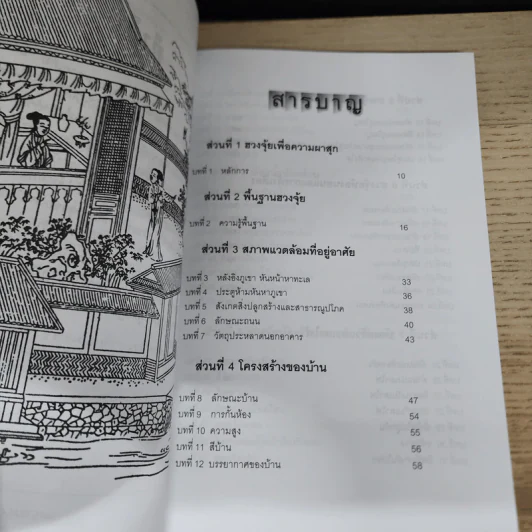 สารบาญ
ส่วนที่ 1 ฮวงจุ้ยเพื่อความผาสุก
บทที่ 1 หลักการ 10
ส่วนที่ 2 พื้นฐานฮวงจุ้ย
บทที่ 2 ความรู้พื้นฐาน 16
ส่วนที่ 3 สภาพแวดล้อมที่อยู่อาศัย
บทที่ 3 หลังอิงภูเขา หันหน้าหาทะเล 33
บทที่ 4 ประตูห้ามหันหาภูเขา 36
บทที่ 5 สังเกตสิ่งปลูกสร้างและสาธารณูปโภค 38
บทที่ 6 ลักษณะถนน 40
บทที่ 7 วัตถุประหลาดนอกอาคาร 43
ส่วนที่ 4 โครงสร้างของบ้าน
บทที่ 8 ลักษณะบ้าน 47
บทที่ 9 การกั้นห้อง 54
บทที่ 10 ความสูง 55
บทที่ 11 สีบ้าน 56
บทที่ 12 บรรยากาศของบ้าน 58